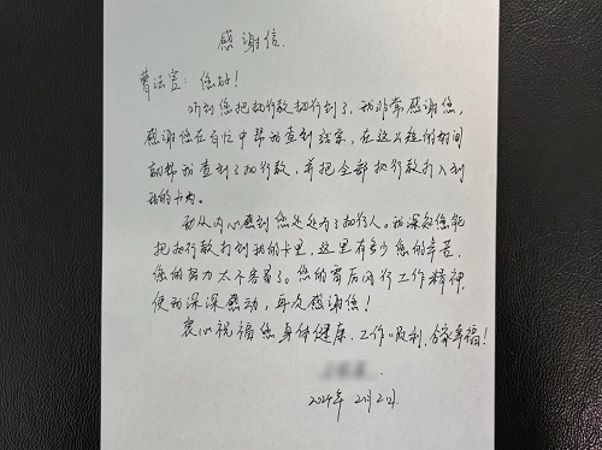 感谢信.
曹法官：您好！
听到您把执行款执行到了，我非常感谢您，
感谢您在百忙中帮我查到线索，在这么短的时间
就帮我查到了执行款，并把全部执行款打入到
我的卡内。
我从内心感到您处处为了执行人。我深知您能
把执行款打到我的卡里，这里有多少您的辛苦，
您的努力太不容易了。您的雷厉风行工作精神，
使我深深感动，再次感谢您！
衷心祝福您身体健康，工作顺利，合家幸福！
2024年2月2日